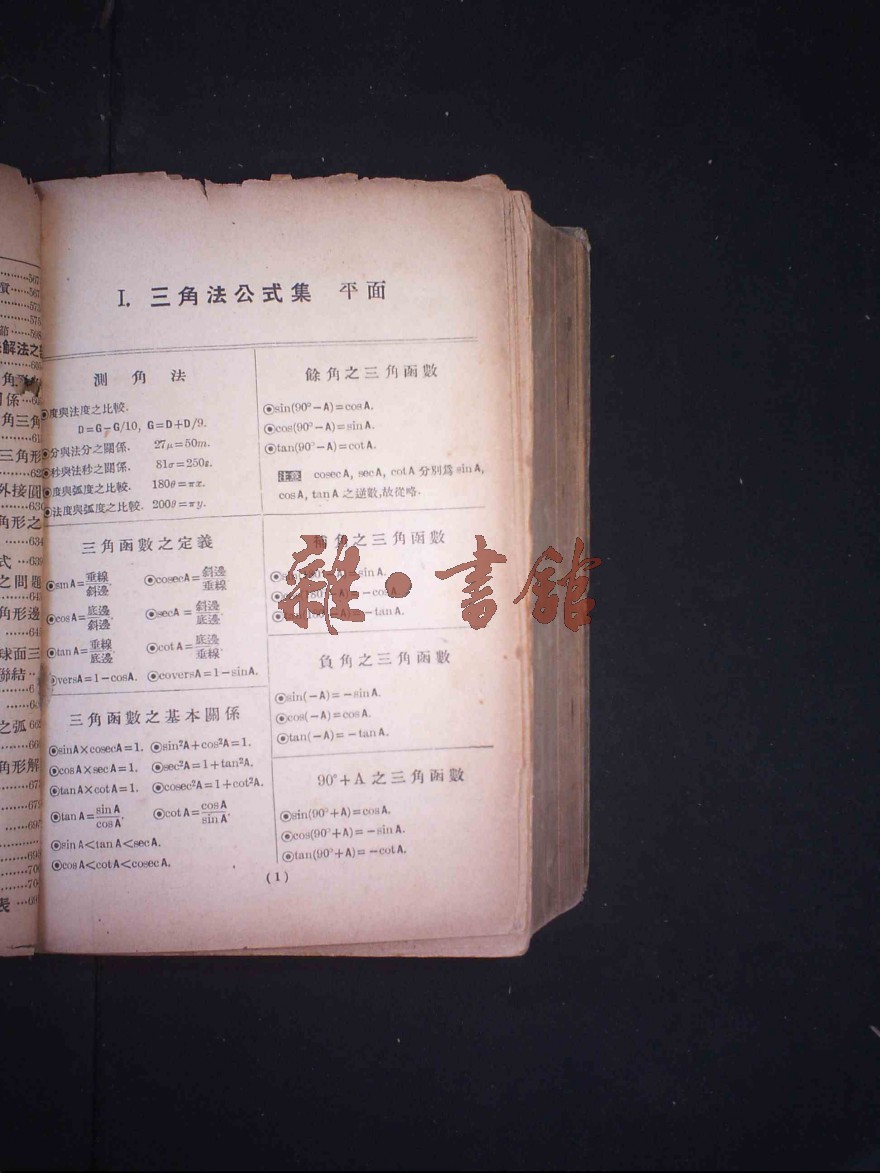 I. 三角法公式集 平面
測角法
度與法度之比較.
D=G-G/10, G=D+D/9.
分與法分之關係. 27μ=50m.
秒與法秒之關係. 81σ=250s.
度與弧度之比較. 180θ=πx.
法度與弧度之比較. 200θ=πy.
三角函數之定義
◉sinA=垂線/斜邊 ◉cosecA=斜邊/垂線
◉cosA=底邊/斜邊 ◉secA=斜邊/底邊.
◉tanA=垂線/底邊 ◉cotA=底邊/垂線.
◉versA=1-cosA. ◉coversA=1-sinA.
三角函數之基本關係
◉sinA×cosecA=1. ◉sin²A+cos²A=1.
◉cosA×secA=1. ◉sec²A=1+tan²A.
◉tanA×cotA=1. ◉cosec²A=1+cot²A.
◉tanA=sinA/cosA. ◉cotA=cosA/sinA.
◉sinA<tanA<secA.
◉cosA<cotA<cosecA.
餘角之三角函數
◉sin(90°-A)=cosA.
◉cos(90°-A)=sinA.
◉tan(90°-A)=cotA.
注意 cosecA, secA, cotA 分別爲 sinA,
cosA, tanA 之逆數,故從略.
補角之三角函數
sinA.
-cosA.
-tanA.
負角之三角函數
◉sin(-A)=-sinA.
◉cos(-A)=cosA.
◉tan(-A)=-tanA.
90°+A之三角函數
◉sin(90°+A)=cosA.
◉cos(90°+A)=-sinA.
◉tan(90°+A)=-cotA.
(1)
雜·書館